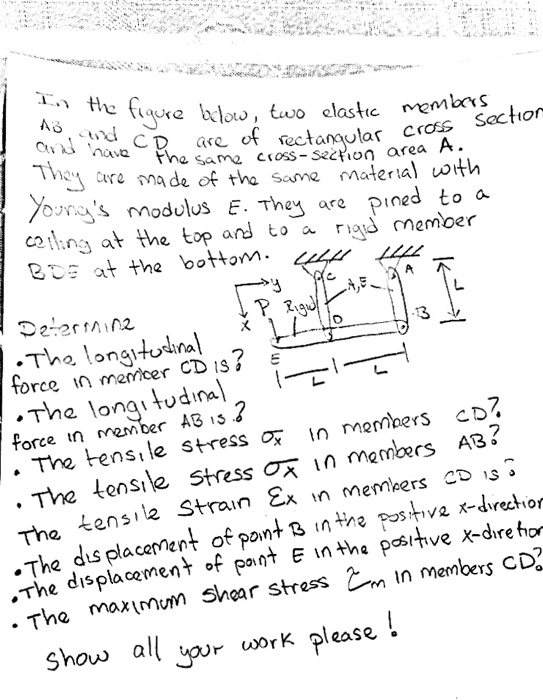 In the figure below, two elastic members
AB, and CD are of rectangular cross section
and have the same cross-section area A.
They are made of the same material with
Young's modulus E. They are pined to a
ceiling at the top and to a rigid member
BDE at the bottom.
y
x
P
Rigid
C
A,E
A
L
D
B
E
L
L
Determine
• The longitudinal
force in member CD is?
• The longitudinal
force in member AB is?
• The tensile stress σx in members CD?
• The tensile stress σx in members AB?
The tensile strain Ɛx in members CD is?
• The displacement of point B in the positive x-direction
• The displacement of point E in the positive x-diretion
• The maximum shear stress τm in members CD?
Show all your work please!